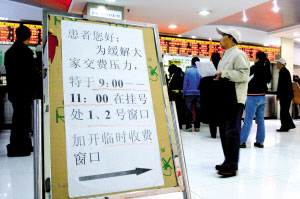 患者您好；
为缓解大
家交费压力，
特于 9:00——
11：00 在挂号
处1、2号窗口
加开临时收费
窗口